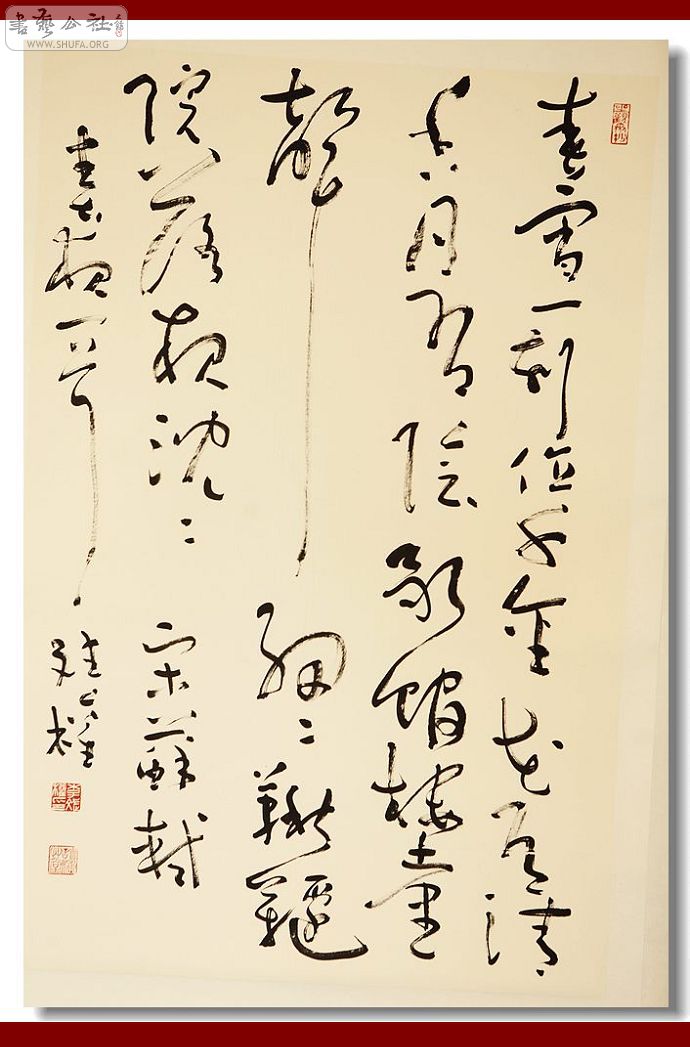 書藝公社
WWW.SHUFA.ORG
春宵一刻值千金花有清
香月有陰歌館樓臺
聲細〻鞦韆
院落夜沈〻宋蘇軾
夜一首